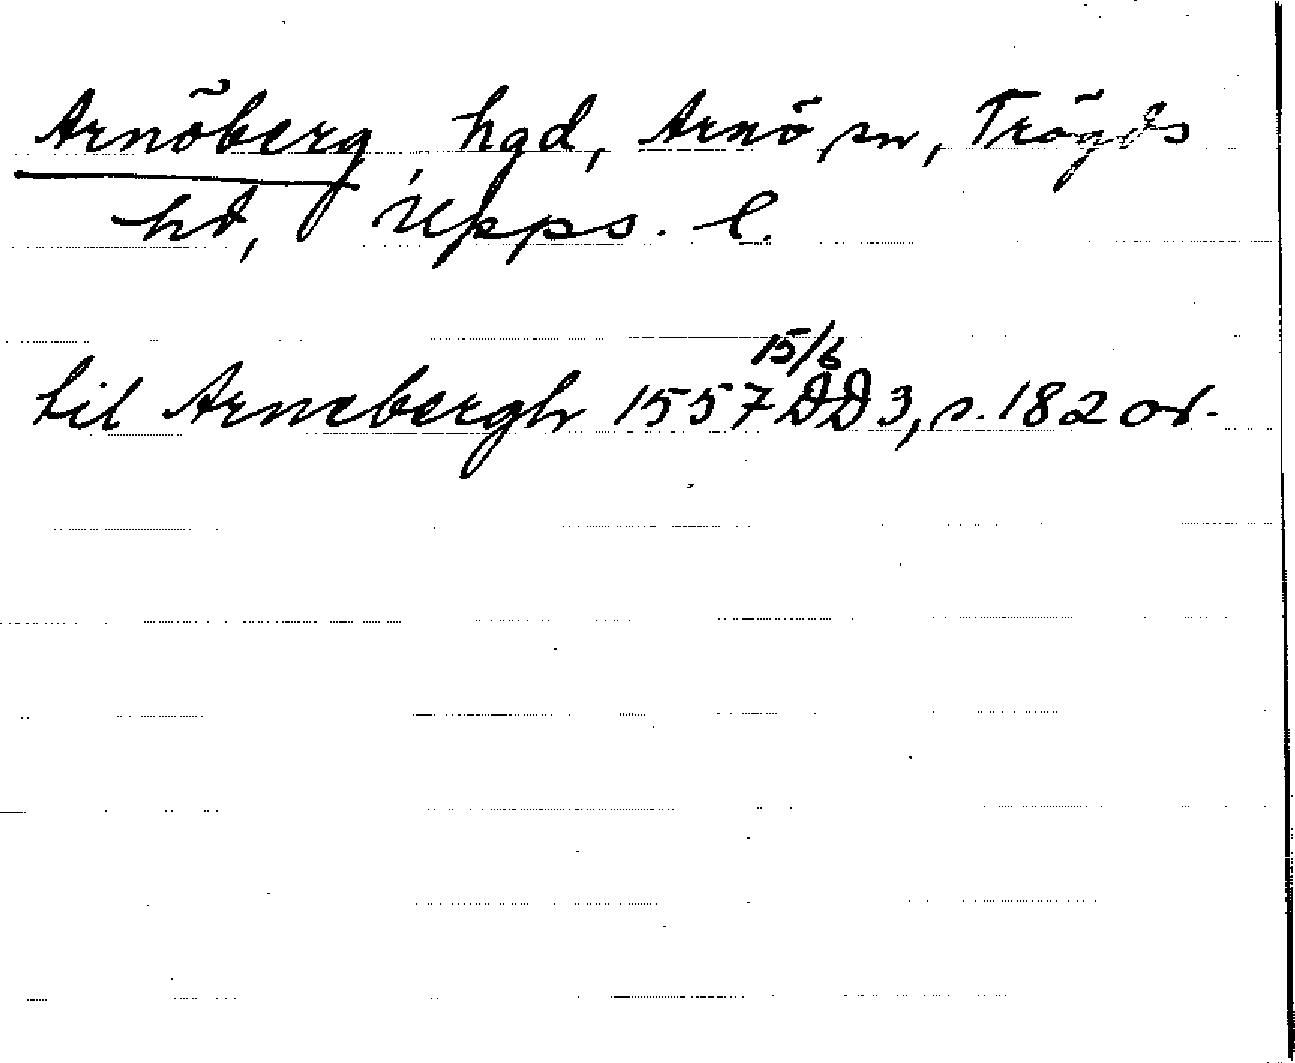 Arnöberg, hgd, Arnö sn, Trögds
hd, Upps. l.
til Arnebergh 1557 15/6 DD 3, s. 182 or.